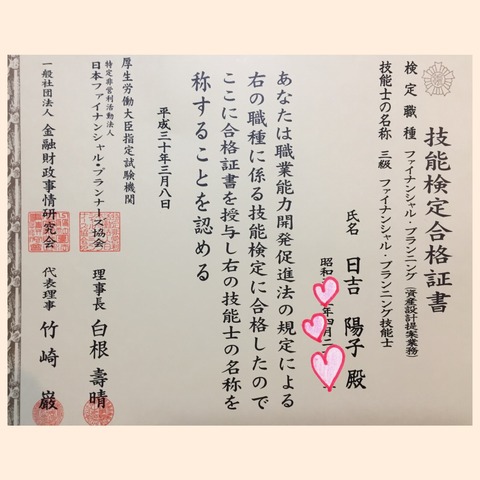 技能検定合格証書
検定職種 ファイナンシャル・プランニング(資産設計提案業務)
技能士の名称 三級 ファイナンシャル・プランニング技能士
氏名 日吉 陽子 殿
昭和 年四月二
あなたは職業能力開発促進法の規定による
右の職種に係る技能検定に合格したので
ここに合格証書を授与し右の技能士の名称を
称することを認める
平成三十年三月八日
厚生労働大臣指定試験機関
特定非営利活動法人
日本ファイナンシャル・プランナーズ協会 理事長 白根 壽晴
一般社団法人 金融財政事情研究会 代表理事 竹崎 巌